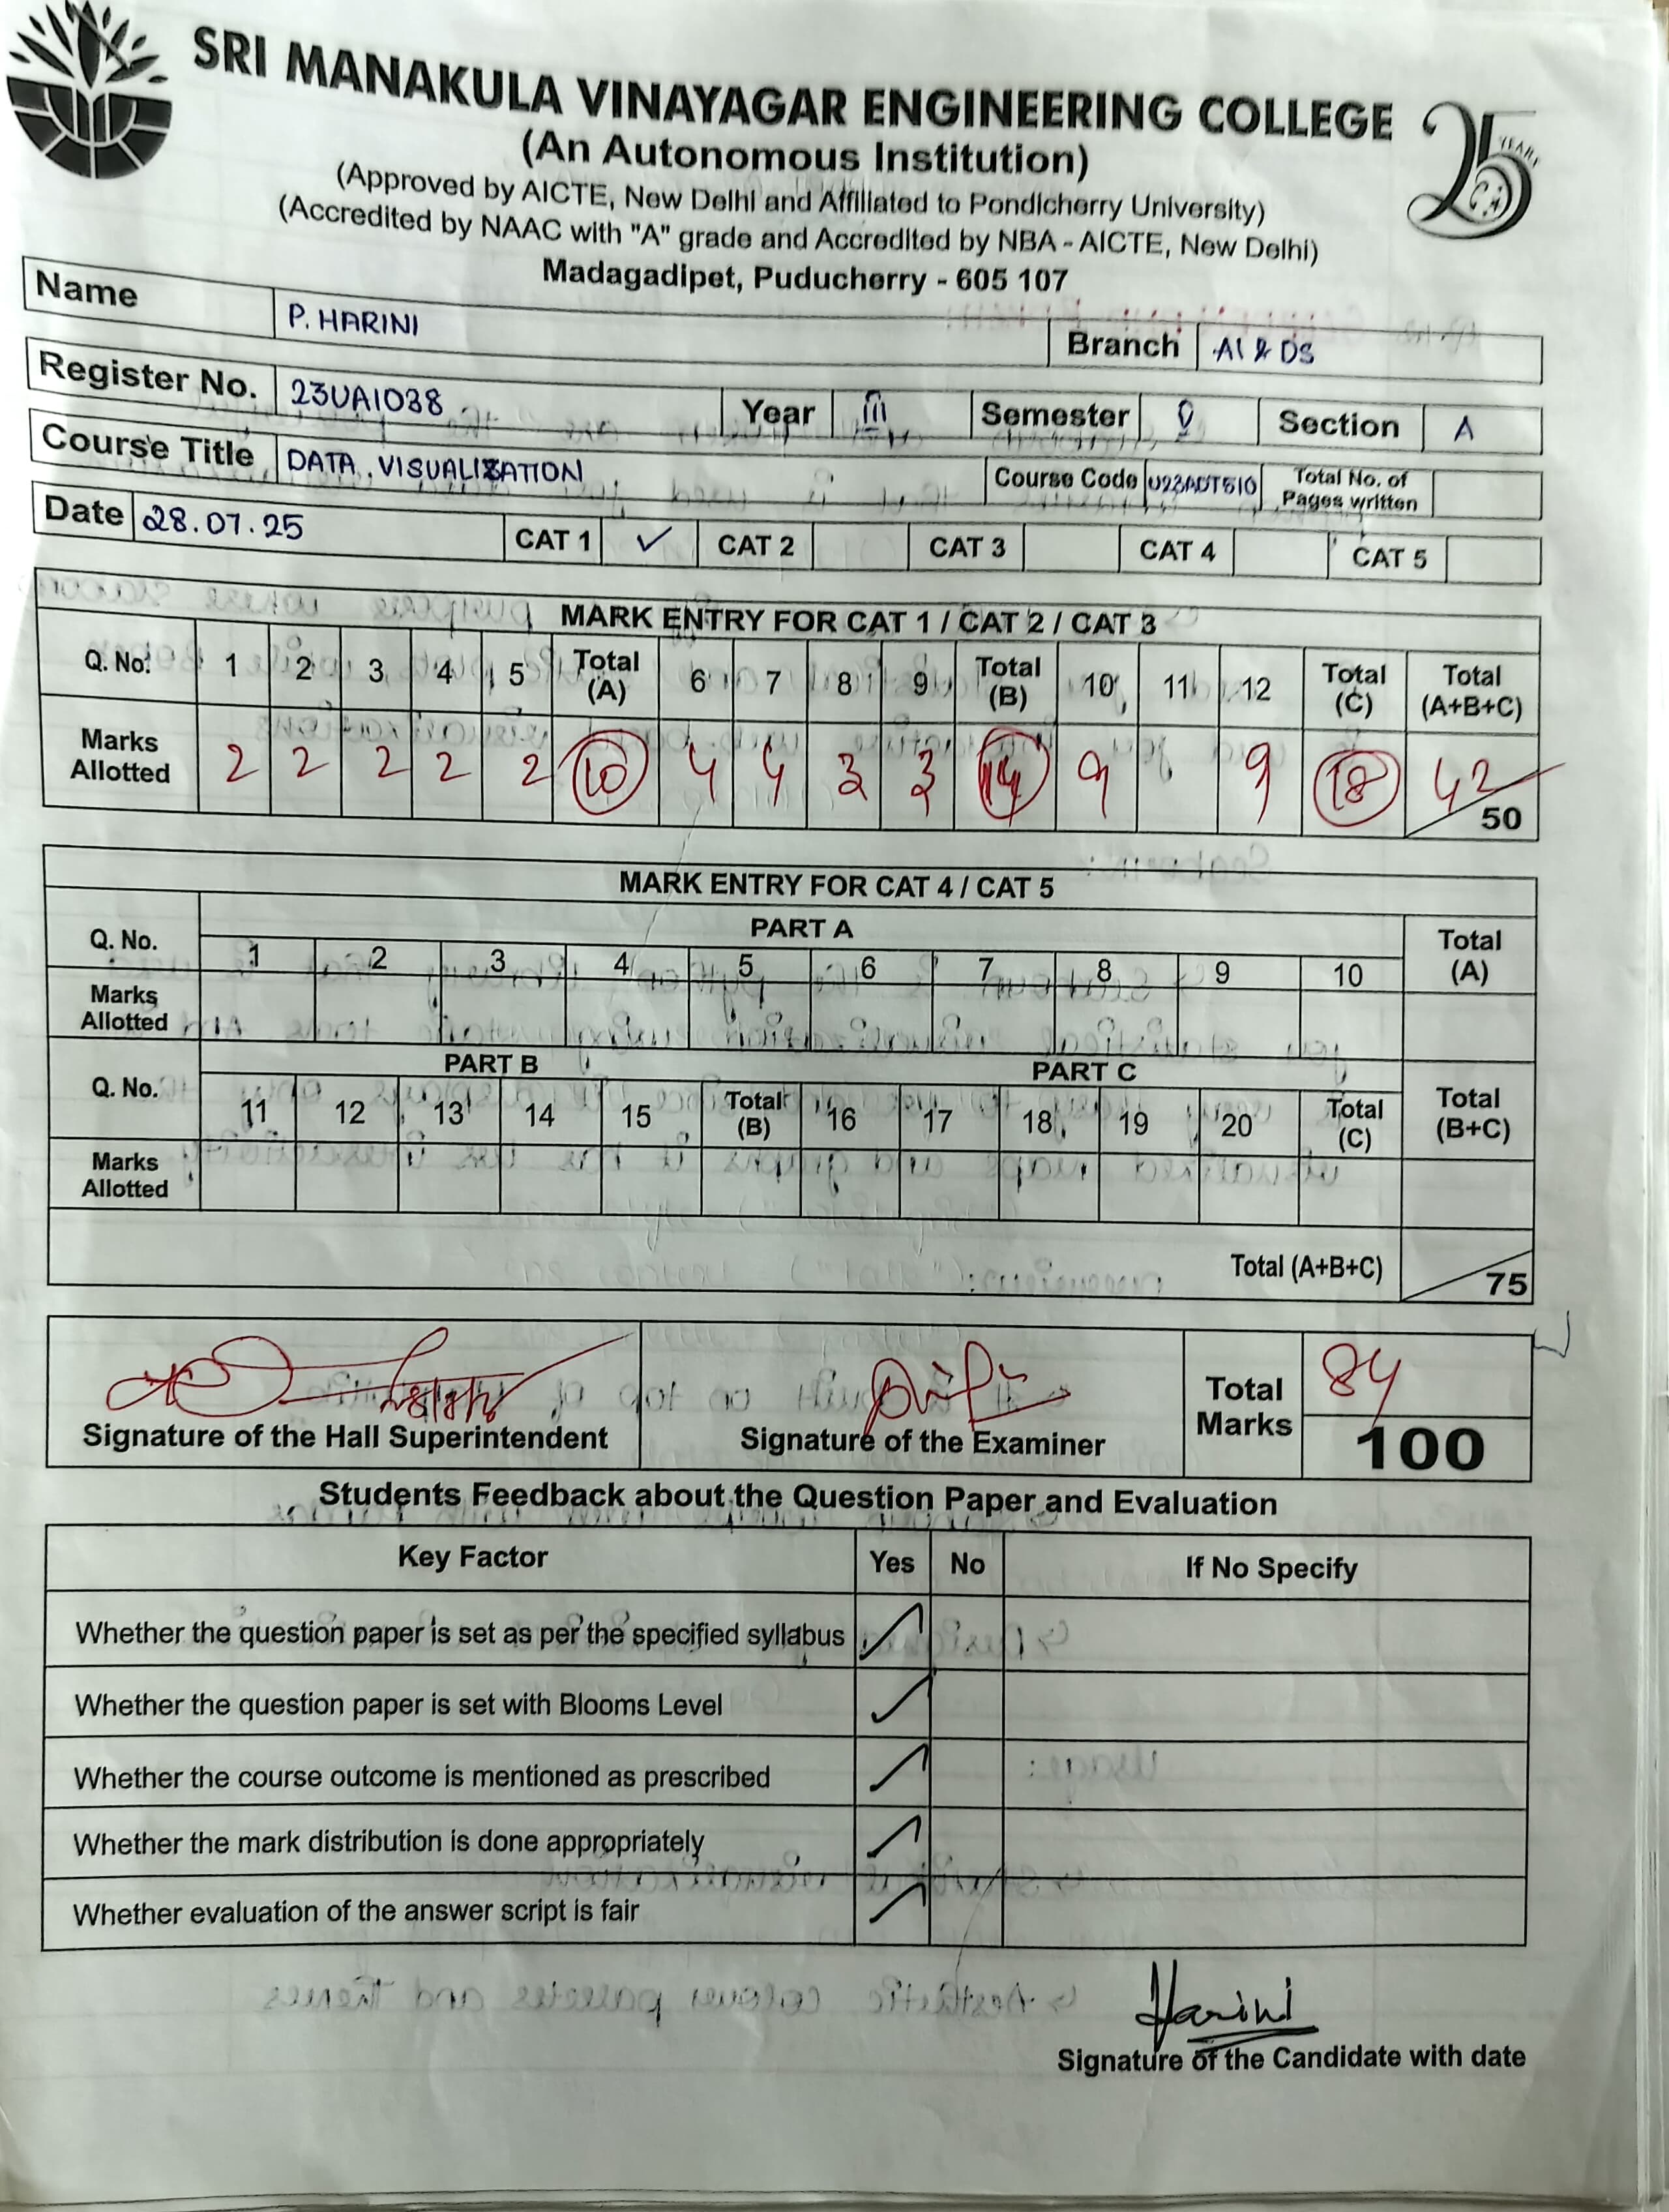 SRI MANAKULA VINAYAGAR ENGINEERING COLLEGE
(An Autonomous Institution)
(Approved by AICTE, New Delhi and Affiliated to Pondicherry University)
(Accredited by NAAC with "A" grade and Accredited by NBA - AICTE, New Delhi)
Madagadipet, Puducherry - 605 107
25 YEARS
Name P. HARINI Branch AI & DS
Register No. 23UAI038 Year III Semester V Section A
Course Title DATA VISUALIZATION Course Code U23ADT510 Total No. of Pages written
Date 28.07.25 CAT 1 ✓ CAT 2 CAT 3 CAT 4 CAT 5
MARK ENTRY FOR CAT 1 / CAT 2 / CAT 3
Q. No. 1 2 3 4 5 Total (A) 6 7 8 9 Total (B) 10 11 12 Total (C) Total (A+B+C)
Marks Allotted 2 2 2 2 2 10 4 4 3 3 14 9 9 18 42/50
MARK ENTRY FOR CAT 4 / CAT 5
PART A
Q. No. 1 2 3 4 5 6 7 8 9 10 Total (A)
Marks Allotted
PART B PART C
Q. No. 11 12 13 14 15 Total (B) 16 17 18 19 20 Total (C) Total (B+C)
Marks Allotted
Total (A+B+C) 75
Signature of the Hall Superintendent Signature of the Examiner Total Marks 84/100
Students Feedback about the Question Paper and Evaluation
Key Factor Yes No If No Specify
Whether the question paper is set as per the specified syllabus
Whether the question paper is set with Blooms Level
Whether the course outcome is mentioned as prescribed
Whether the mark distribution is done appropriately
Whether evaluation of the answer script is fair
Harini
Signature of the Candidate with date